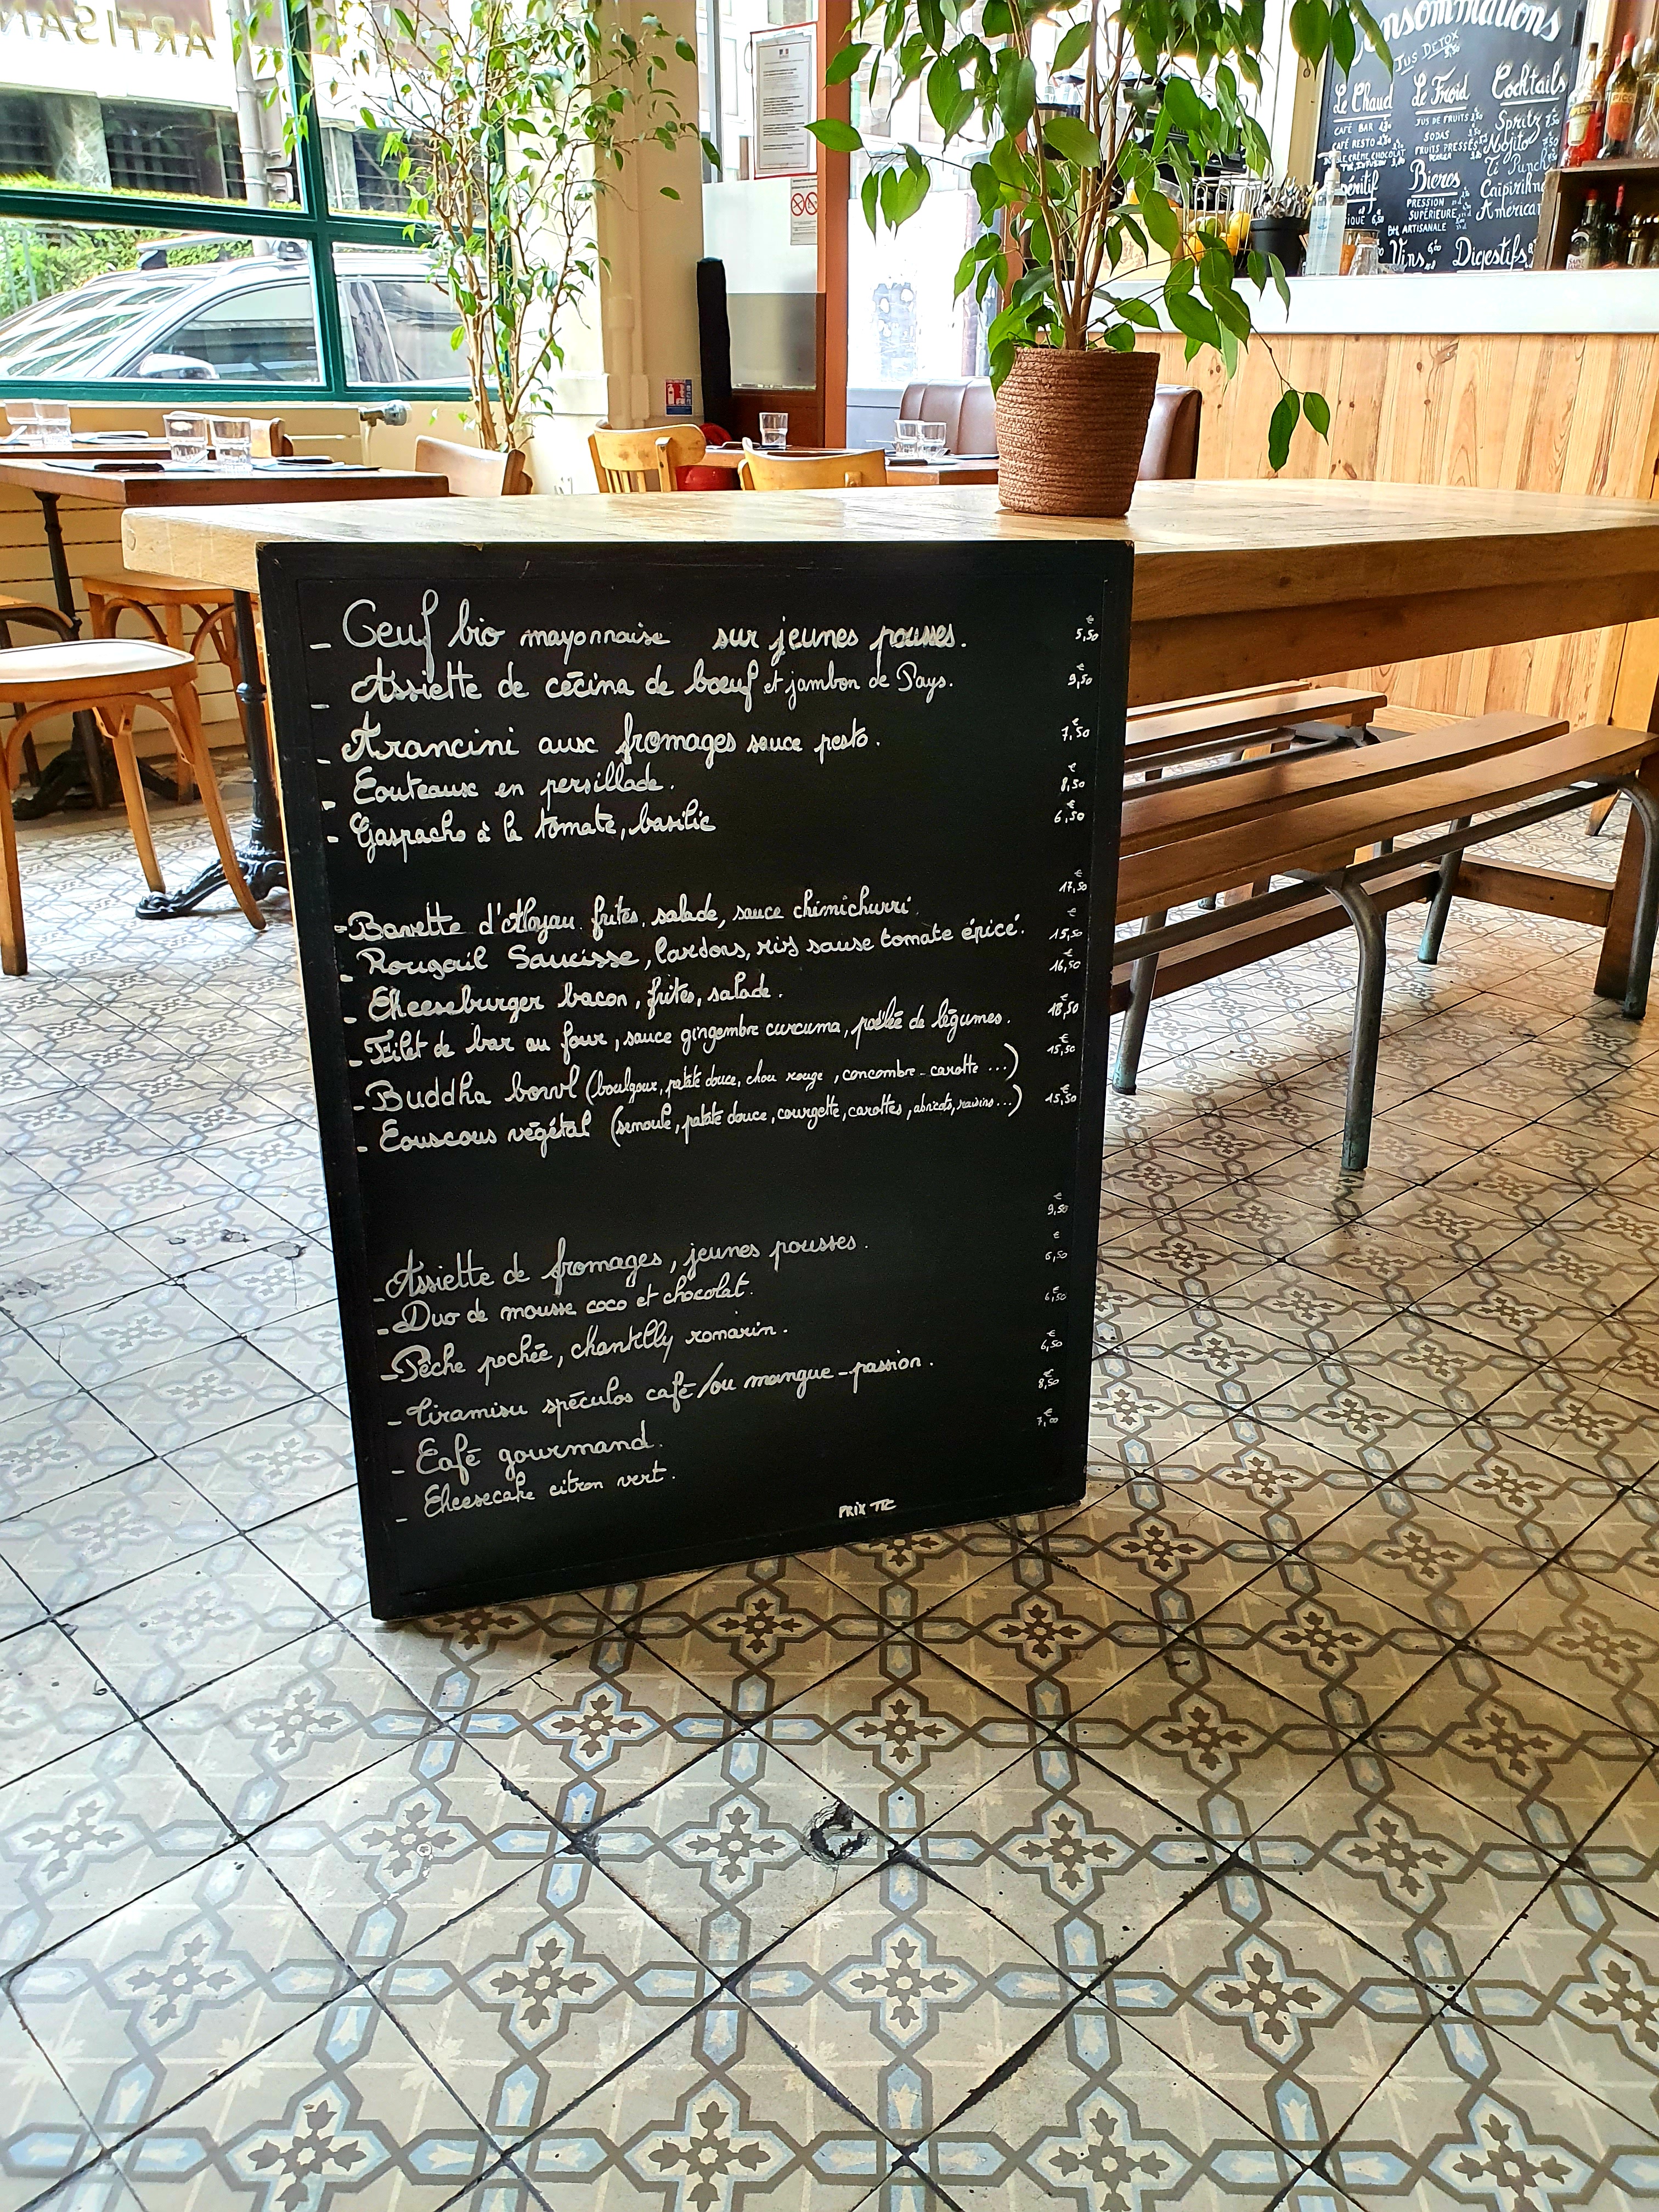 ARTISAN
Consommations
Jus DETOX
5,50
Le Chaud Le Froid Cocktails
CAFÉ BAR
CAFÉ RESTO
JUS DE FRUITS
SODAS
FRUITS PRESSÉS
Spritz
Mojito
Ti Punch
Caipirinha
Americano
Bières
PRESSION
SUPÉRIEURE
BTL ARTISANALE
Vins Digestifs
- Oeuf bio mayonnaise sur jeunes pousses. 5,50 €
- Assiette de cécina de bœuf et jambon de Pays. 9,50 €
- Arancini aux fromages sauce pesto. 7,50 €
- Couteaux en persillade. 8,50 €
- Gaspacho à la tomate, basilic 6,50 €
- Bavette d'Aloyau frites, salade, sauce chimichurri. 17,50 €
- Rougail Saucisse, lardons, riz sause tomate épicé. 15,50 €
- Cheeseburger bacon, frites, salade. 16,50 €
- Filet de bar au four, sauce gingembre curcuma, poêlée de légumes. 18,50 €
- Buddha bowl (boulgour, patate douce, chou rouge, concombre - carotte ...) 15,50 €
- Couscous végétal (semoule, patate douce, courgette, carottes, abricots, raisins...) 15,50 €
- Assiette de fromages, jeunes pousses. 9,50 €
- Duo de mousse coco et chocolat. 6,50 €
- Pêche pochée, chantilly romarin. 6,50 €
- Tiramisu spéculos café/ou mangue-passion. 6,50 €
- Café gourmand. 8,50 €
- Cheesecake citron vert. 7,00 €
PRIX TTC